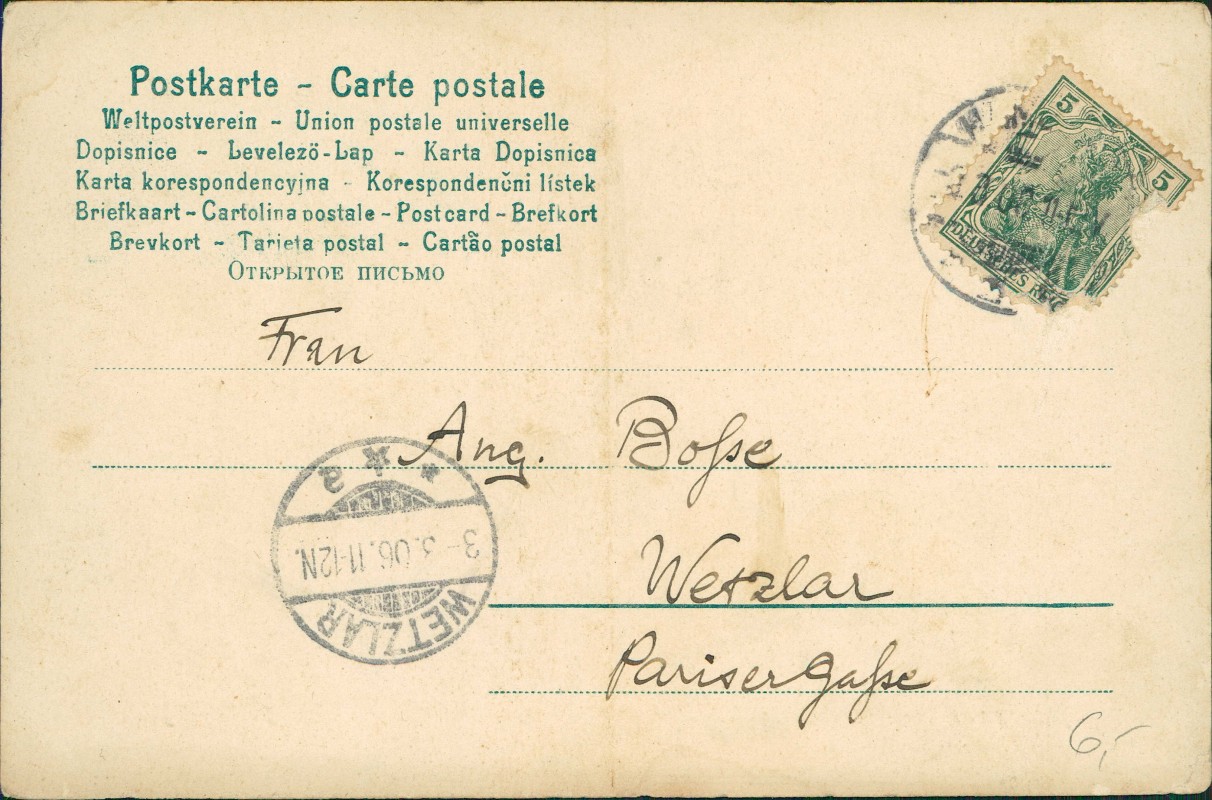 Postkarte - Carte postale
Weltpostverein - Union postale universelle
Dopisnice - Levelező-Lap - Karta Dopisnica
Karta korespondencyjna - Korespondenčni lístek
Briefkaart - Cartolina postale - Postcard - Brefkort
Brevkort - Tarjeta postal - Cartão postal
Открытое письмо
5
5
DEUTSCHES REIC
Frau
Aug. Bosse
Wetzlar
Pariser Gasse
WETZLAR
3-3.06.11-12N.
* * 2
6,-